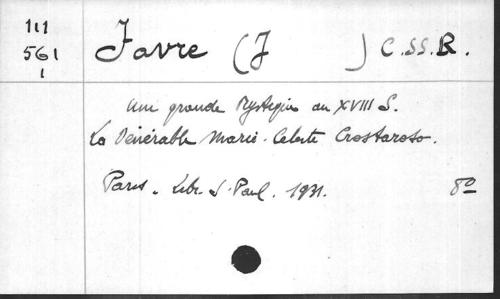 111
561
1
Favre (J ) C.SS.R.
Une grande Mystique au XVIII S.
La Vénérable Marie-Celeste Crostarosa.
Paris. Libr. S. Paul. 1931. 8º